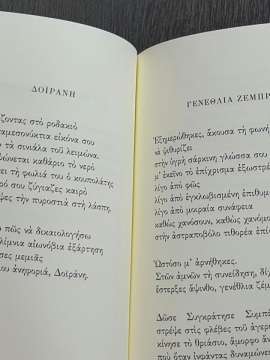 ΔΟΪΡΑΝΗ
ζοντας στὸ ροδακιὸ
αμεσονύκτια εἰκόνα σου
τὰ σινιάλα τοῦ λειμώνα.
ώνεται καθάριο νερὸ
τὴ φωλιά του ὁ κουπολάτης
ροῦ ζύγιαζες καιρὸ
εψες τὴν πυροστιὰ στὴ λάσπη.
ο πὼς νὰ δικαιολογήσω
λίμνια αἰωνόβια ἐξάρτηση
ησες μεμιᾶς
ου ἀνηφοριά, Δοϊράνη.
ΓΕΝΕΘΛΙΑ ΖΕΜΠΡ
Ἐξημερώθηκες, ἄκουσα τὴ φων
νὰ ψιθυρίζει
στὴν ὑγρὴ σάρκινη γλώσσα σου
μὲ τ' ἐπίχρισμα ἐξωστρέ
λίγο ἀπὸ φῶς
λίγο ἀπὸ ἐγκλωβισμένη ἐπιθυμ
λίγο ἀπὸ μοιραία συνάφεια
καθὼς χανόσουν, καθὼς χανόμο
στὴν ἀστραποβόλο τιθορέα ἐπι
Ὡστόσο μ' ἀρνήθηκες.
Στῶν ἀμνῶν τὴ συνείδηση, δίχ
ἔστερξες ἄψινθο, γενέθλια ζέμ
Δῶσε Συγκράτησε Συμπέ
στρέψε στὶς φλέβες τοῦ ἀγερ
κράτησε τὸ θριάσιο, ἄμορφο ἀν